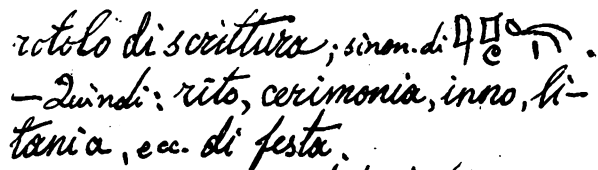 rotolo di scrittura; sinon. di .
— Quindi: rito, cerimonia, inno, li-
tania, ecc. di festa.